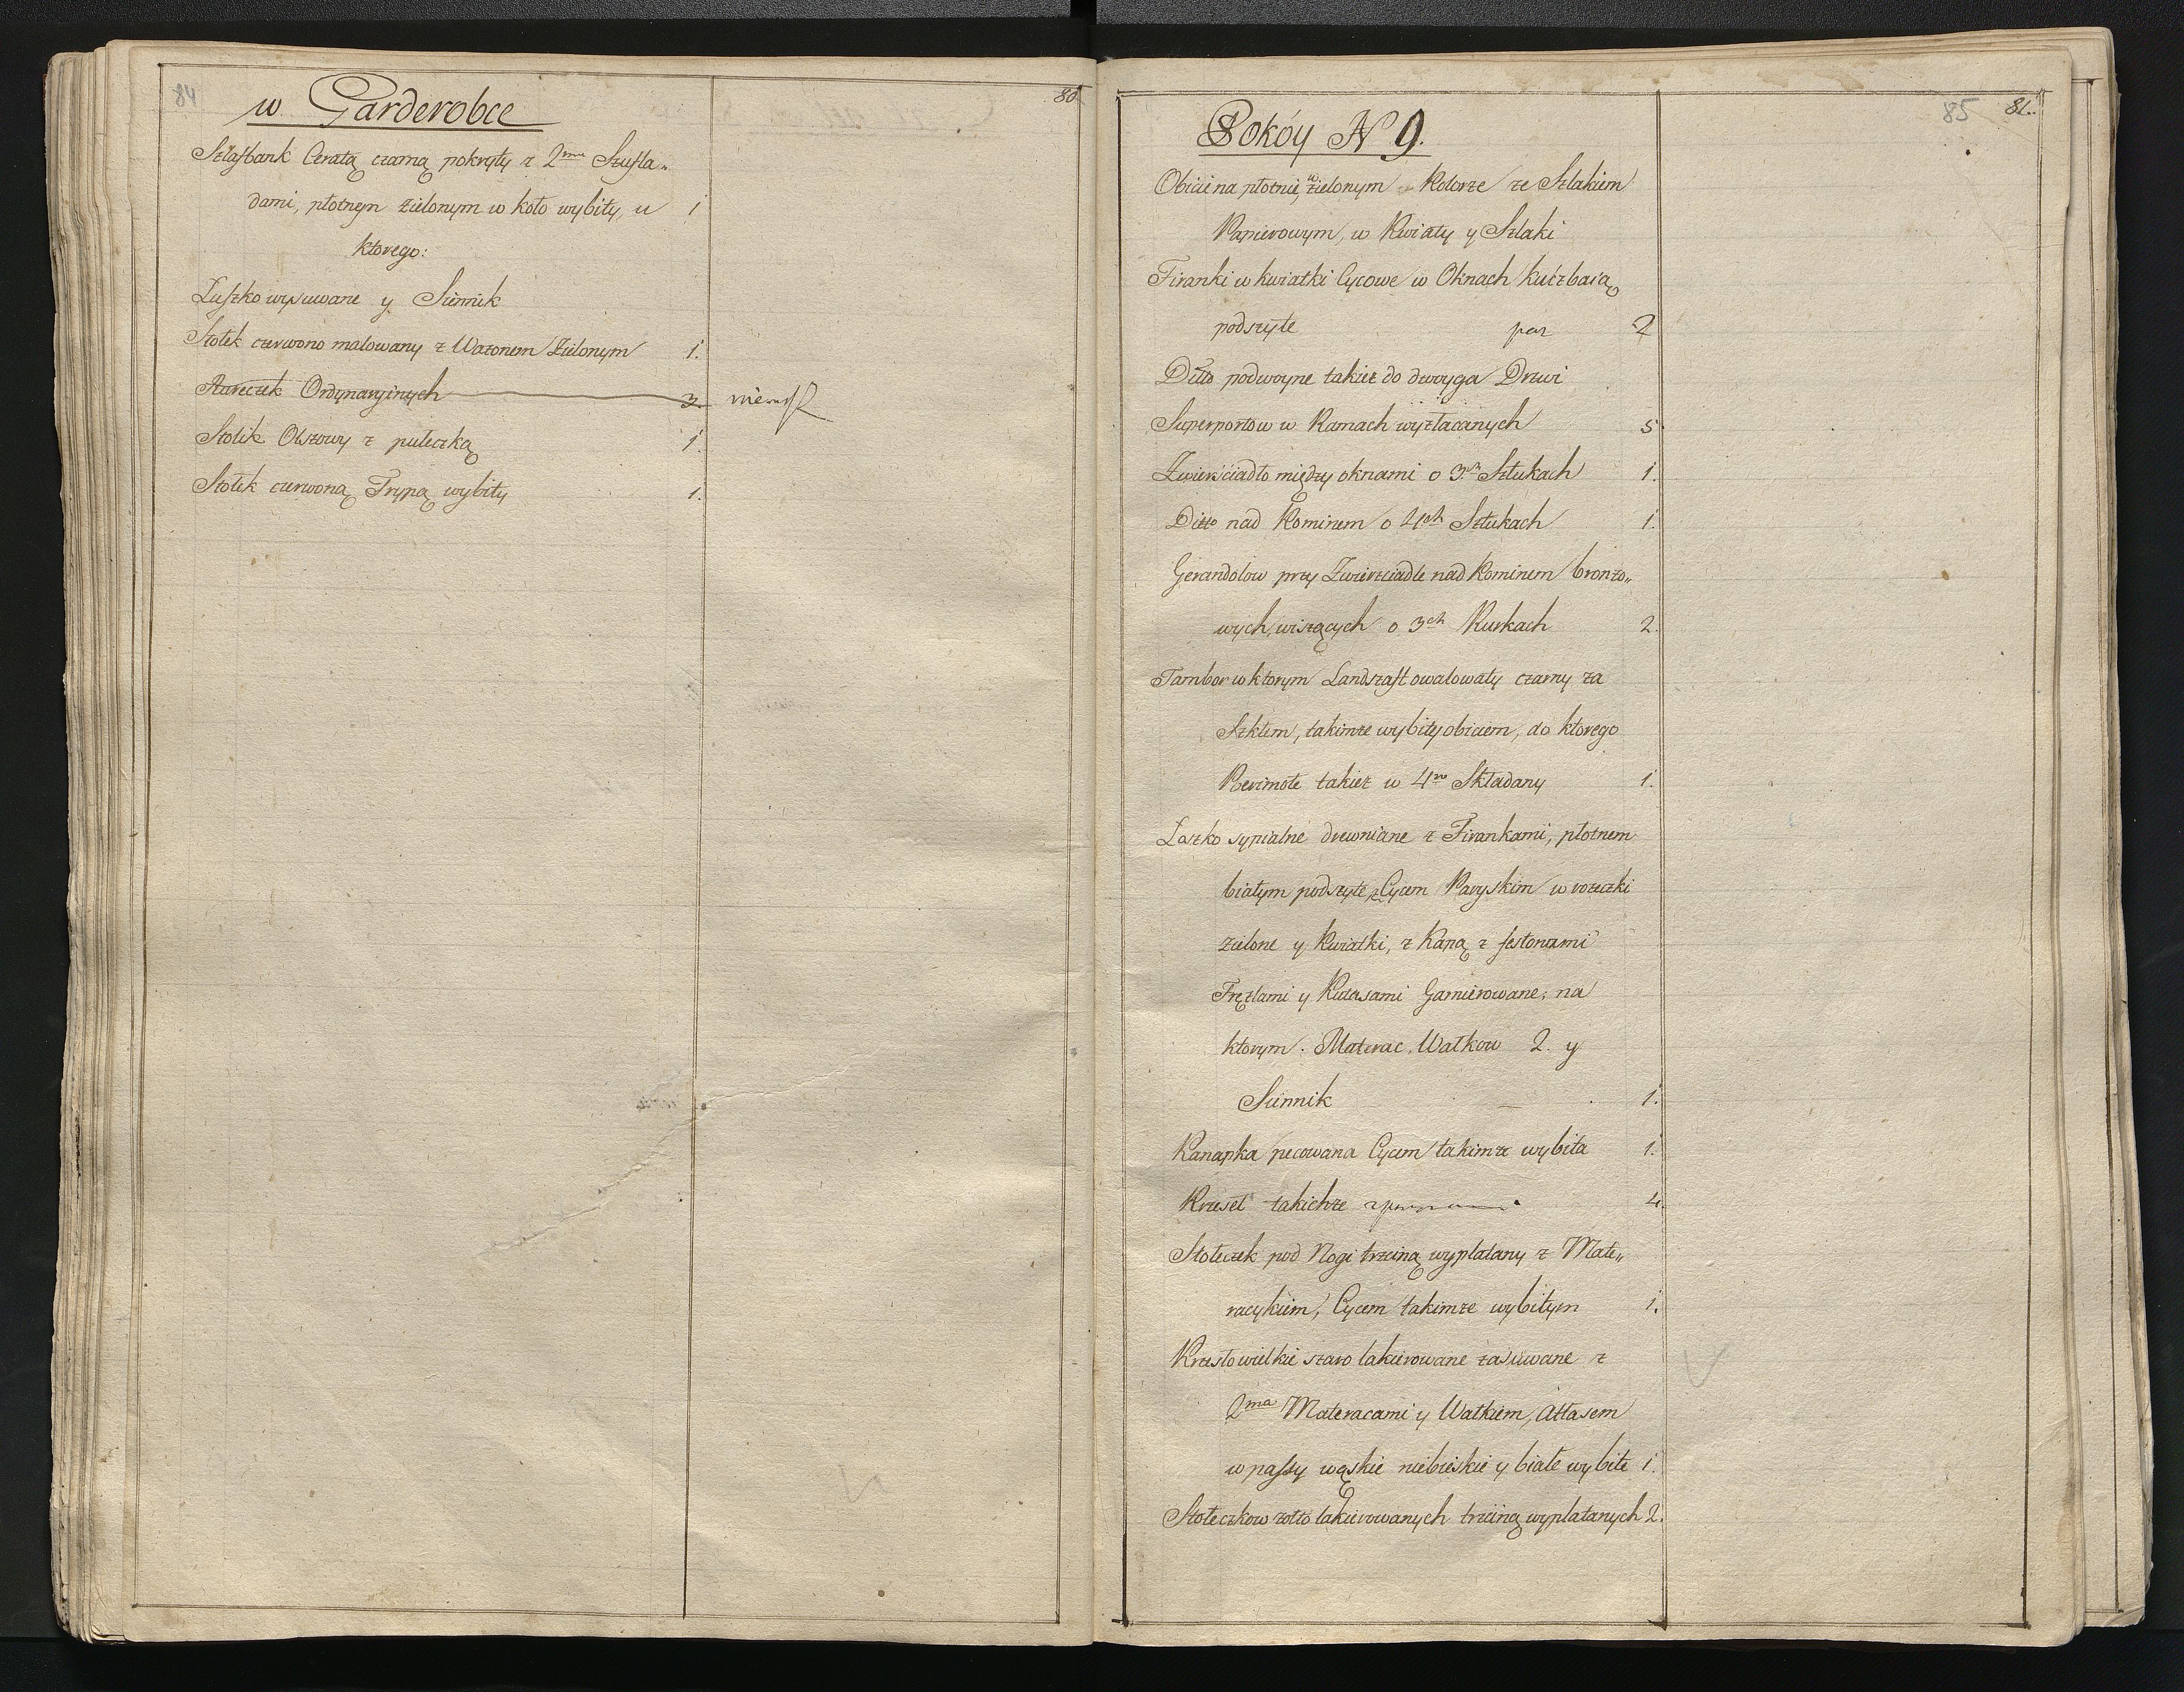 84
80
w Garderobce
Szlafbank Ceratą czarną pokryty z 2ma Szufla„
dami, płotnem zielonym w koło wybity, u 1
ktorego:
Łuszko wysuwane y Siennik
Stołek czerwono malowany z Wazonem Zielonym 1.
Stareczek Ordynaryinych 3.
Stolik Olszowy z pułeczką 1.
Stołek czerwoną Trypą wybity 1.
85 81.
Pokóy N 9.
Obicie na płotnie, w zielonym Kolorze ze Szlakiem
Papierowym, w Kwiaty y Szlaki
Firanki w kwiatki Cycowe w Oknach kuczbaią
podszyte par 2
Ditto podwoyne takież do dwoyga Drzwi
Superportow w Ramach wyzłacanych 5
Zwierściadło między oknami o 3ch Sztukach 1.
Ditto nad Kominem o 4ch Sztukach 1.
Gerandolow przy Zwierzciadle nad Kominem bronzo„
wych, wiszących o 3ch Rurkach 2.
Tambor w ktorym Landszaft owalowaty czarny za
Szkłem, takimze wybity obiciem, do ktorego
takież w 4ro Składany 1.
Łoszko sypialne drewniane z Firankami, płotnem
białym podszyte, z Cycem Paryskim w rozeczki
zielone y kwiatki, z Kapą z festonami
Fręzlami y Kutasami Garnierowane; na
ktorym. Materac. Wałkow 2. y
Siennik 1.
Kanapka pecowana Cycem takimze wybita 1.
Krzeseł takichze 4.
Stołeczek pod Nogi trzciną wyplatany z Mate„
racykiem, Cycem takimze wybitym 1.
Krzesło wielkie szaro lakierowane zasuwane z
2ma Materacami y Wałkiem, Atłasem
w passy wąskie niebieskie y białe wybite 1.
Stołeczkow zołto lakierowanych trzciną wyplatanych 2.